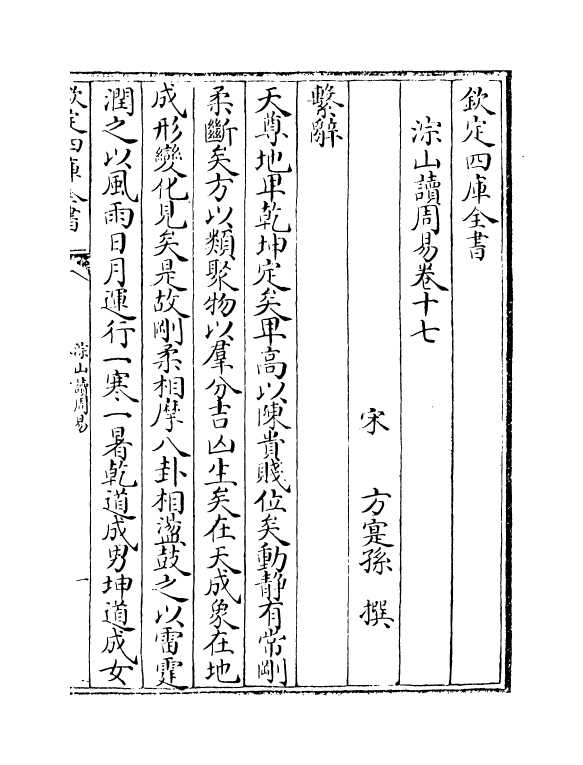 欽定四庫全書
淙山讀周易卷十七
宋 方寔孫 撰
繫辭
天尊地卑乾坤定矣卑高以陳貴賤位矣動静有常剛
柔斷矣方以類聚物以羣分吉凶生矣在天成象在地
成形變化見矣是故剛柔相摩八卦相盪鼓之以雷霆
潤之以風雨日月運行一寒一暑乾道成男坤道成女
欽定四庫全書
淙山讀周易
一